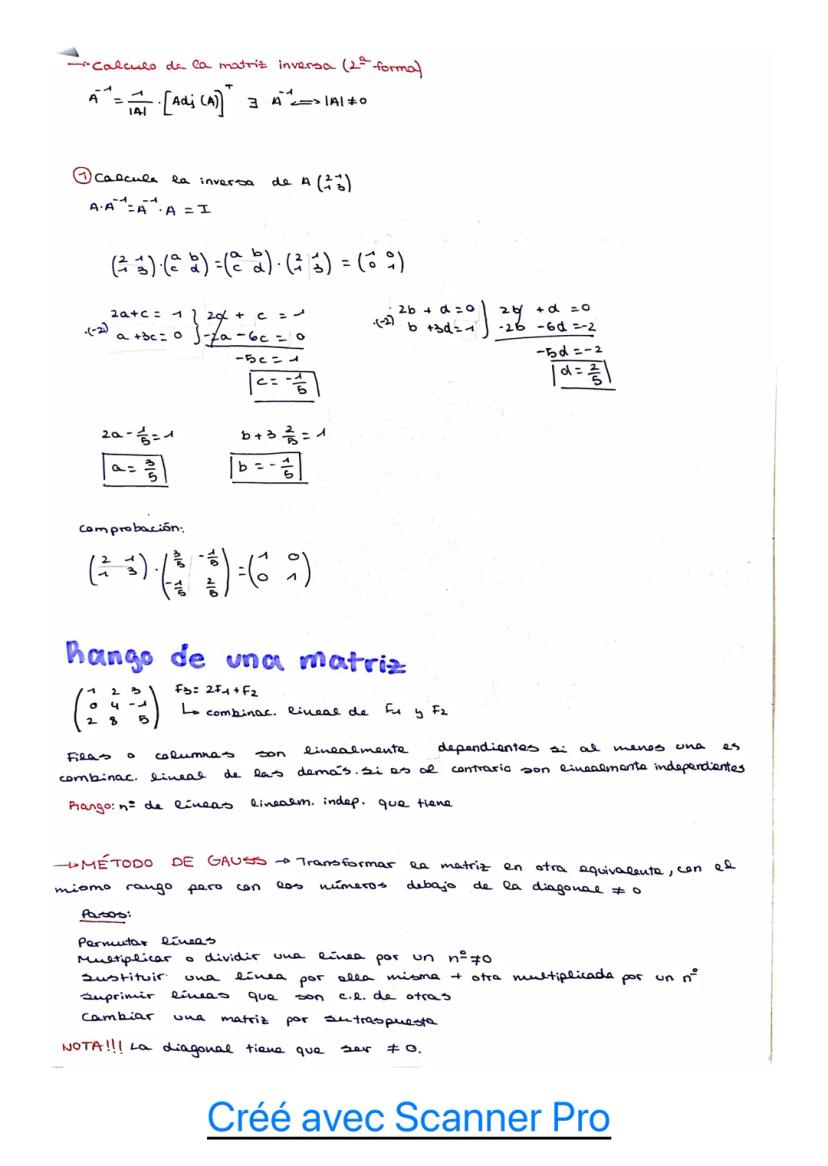 → Calculo de la matriz inversa (2ª forma)
A⁻¹ = 1/|A| · [Adj (A)]ᵀ ∃ A⁻¹ ⟺ |A| ≠ 0
① Calcula la inversa de A (2 1 / 1 3)
A·A⁻¹ = A⁻¹·A = I
(2 1 / 1 3)·(a b / c d) = (a b / c d)·(2 1 / 1 3) = (1 0 / 0 1)
2a+c = 1 } 2a + c = 1
·(-2) a+3c = 0 } -2a - 6c = 0
-5c = 1
c = -1/5
2b + d = 0 } 2b + d = 0
·(-2) b +3d = 1 } -2b -6d = -2
-5d = -2
d = 2/5
2a - 1/5 = 1
a = 3/5
b + 3 2/5 = 1
b = -1/5
comprobación:
(2 1 / 1 3)·(3/5 -1/5 / -1/5 2/5) = (1 0 / 0 1)
Rango de una matriz
(1 2 3 / 0 4 -1 / 2 8 5) F3 = 2F1 + F2
↳ combinac. lineal de F1 y F2
Filas o columnas son linealmente dependientes si al menos una es
combinac. lineal de las demás. si es al contrario son linealmente independientes
Rango: nº de líneas linealm. indep. que tiene
→ MÉTODO DE GAUSS → Transformar la matriz en otra equivalente, con el
mismo rango pero con los números debajo de la diagonal ≠ 0
Pasos:
Permutar líneas
Multiplicar o dividir una línea por un nº≠0
Sustituir una línea por ella misma + otra multiplicada por un nº
Suprimir líneas que son c.l. de otras
Cambiar una matriz por su traspuesta
NOTA!!! La diagonal tiene que ser ≠ 0.
Créé avec Scanner Pro